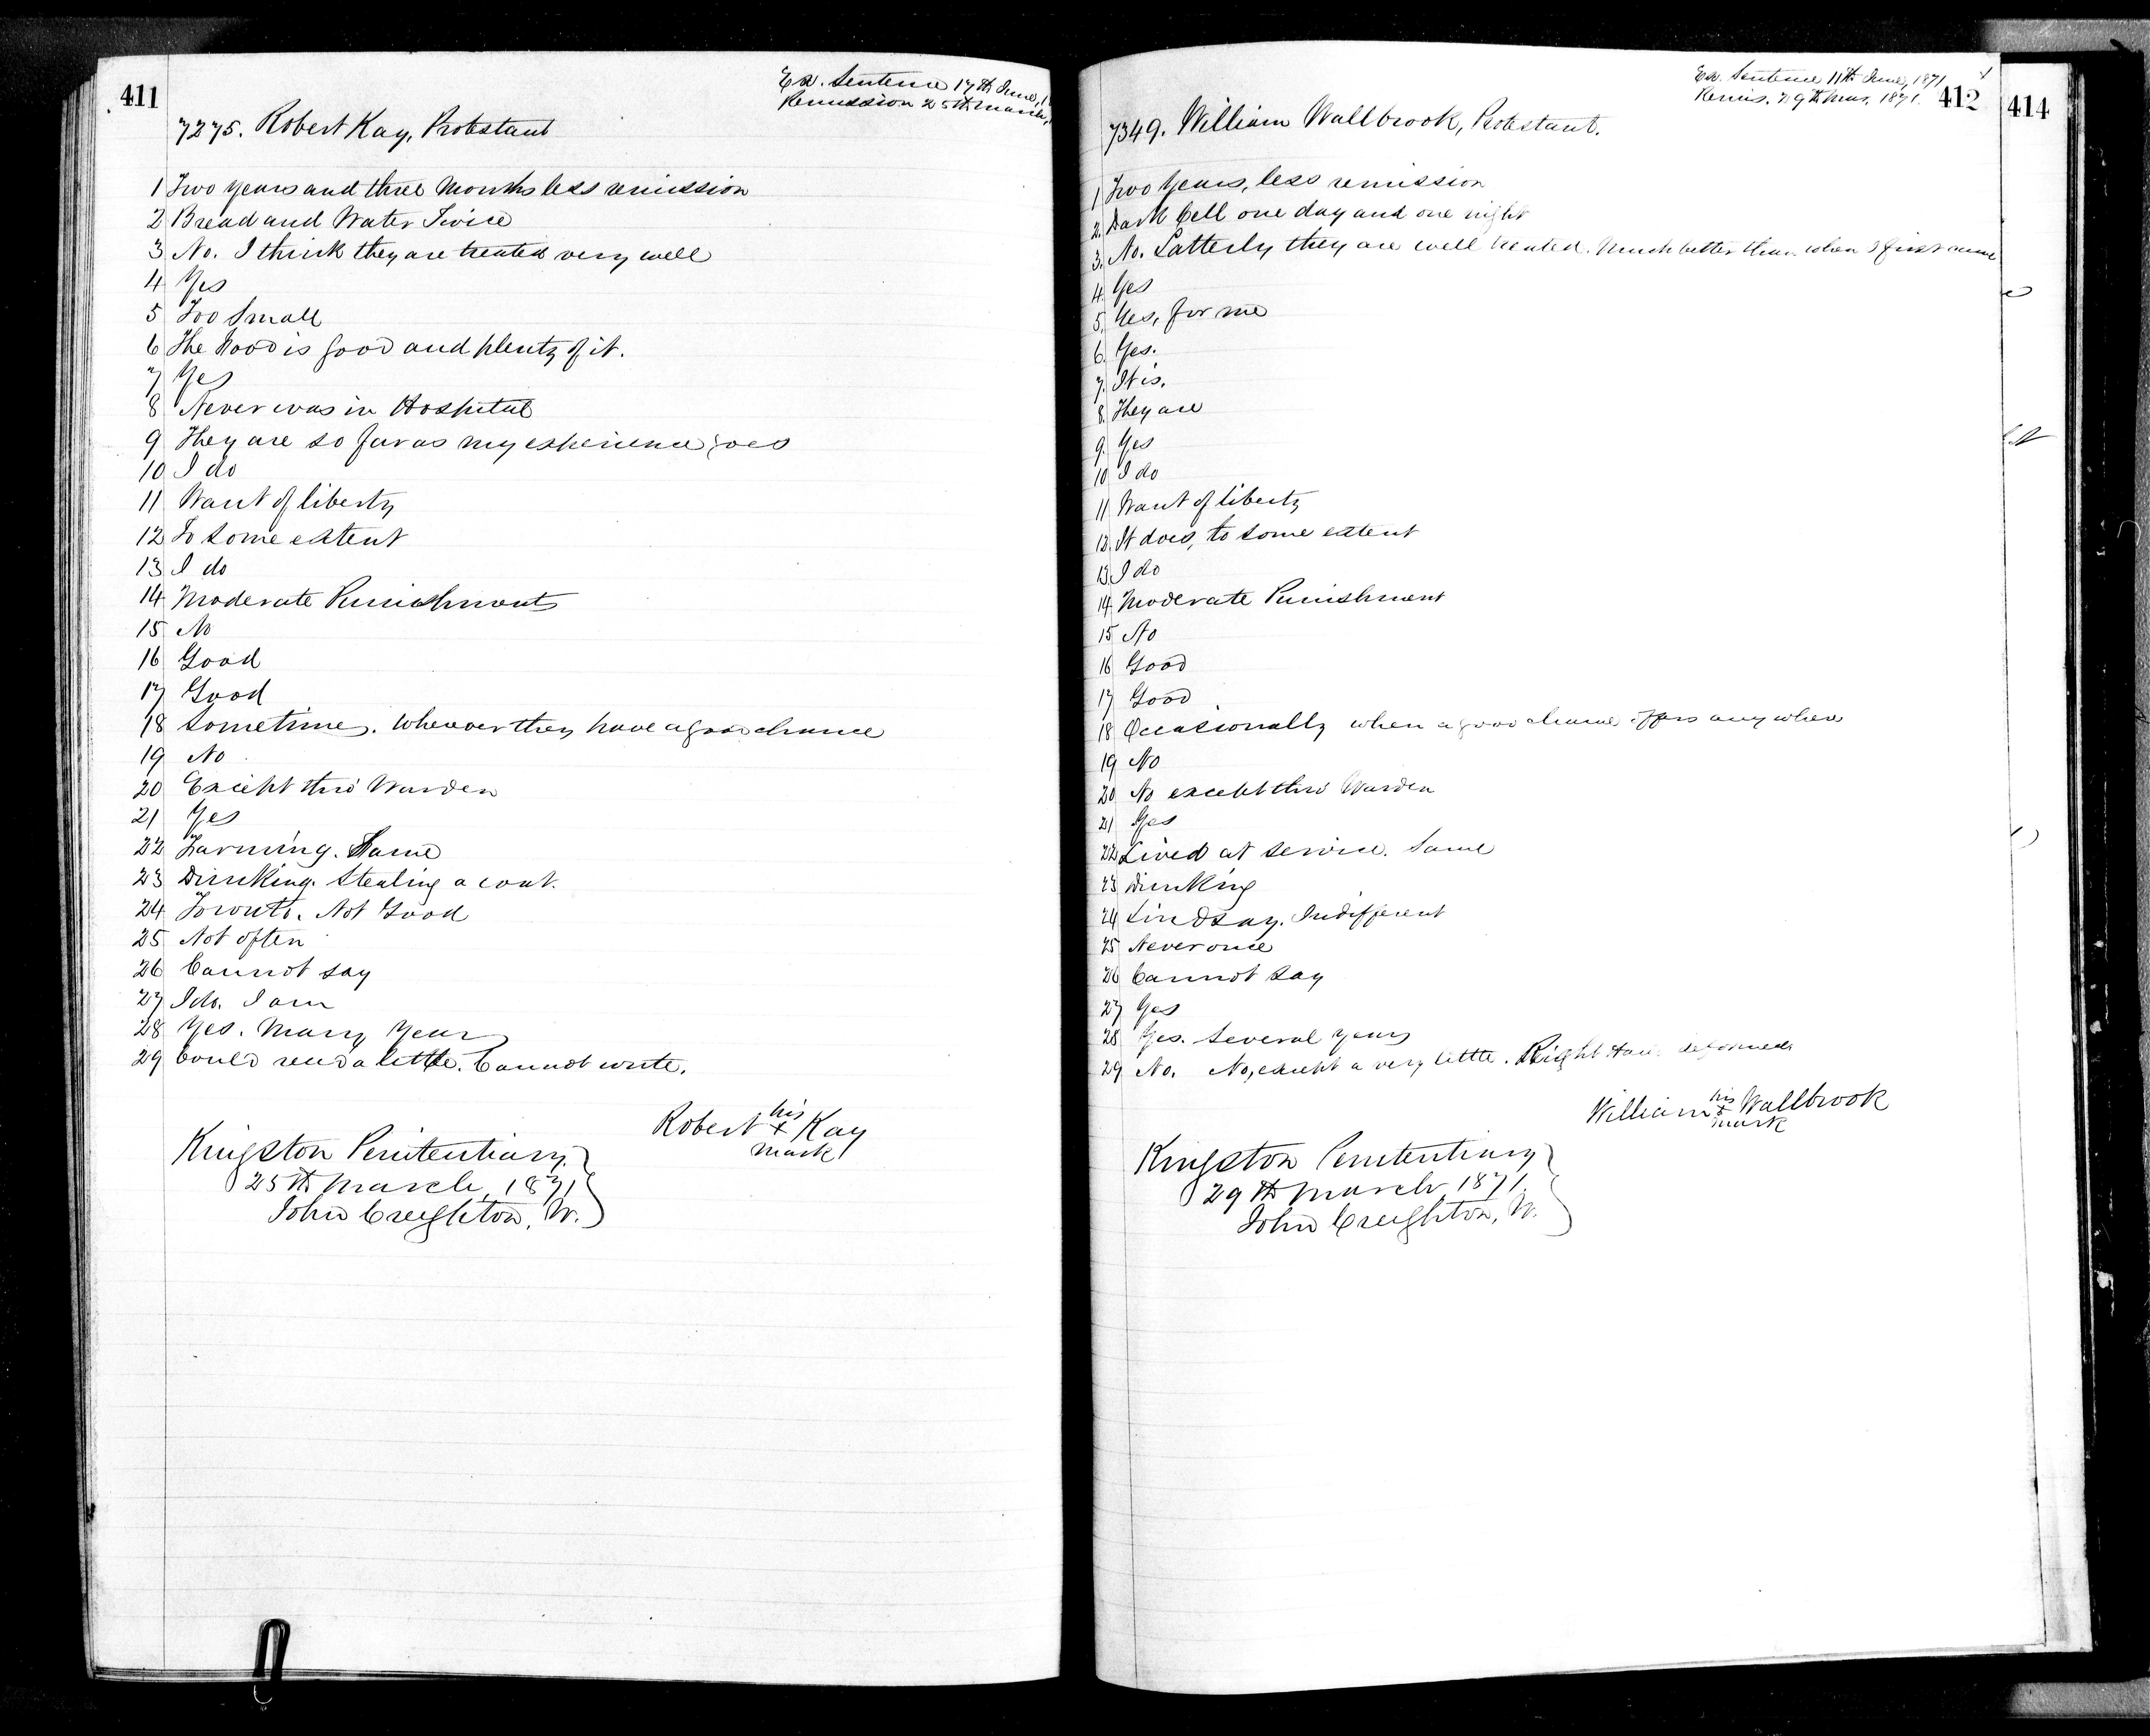 411
Ex. Sentence 17th June, 1
Remission 25th March,
7275. Robert Kay, Protestant
1 Two years and three months less remission
2 Bread and Water Twice
3 No. I think they are treated very well
4 Yes
5 Too Small
6 The Food is good and plenty of it.
7 Yes
8 Never was in Hospital
9 They are so far as my experience goes
10 I do
11 Want of liberty
12 To some extent
13 I do
14 Moderate Punishment
15 No
16 Good
17 Good
18 Sometimes. Whenever they have a good chance
19 No
20 Except thro' Warden
21 Yes
22 Farming. Same
23 Drinking. Stealing a coat.
24 Toronto. Not Good
25 Not often
26 Cannot say
27 I do. I am
28 Yes. Many Years
29 Could read a little. Cannot write.
his
Robert x Kay
mark
Kingston Penitentiary
25th March, 1871
John Creighton, W.
Ex. Sentence 11th June, 1871
Remis. 29th Mar. 1871.
412
7349. William Wallbrook, Protestant.
1 Two Years, less remission
2. Dark Cell one day and one night
3. No. Latterly they are well treated. Much better than when I first came
4. Yes
5. Yes, for me
6. Yes.
7. It is.
8. They are
9. Yes
10 I do
11 Want of liberty
12. It does, to some extent
13. I do
14. Moderate Punishment
15 No
16 Good
17 Good
18 Occasionally when a good chance offers anywhere
19 No
20 No except thro' Warden
21 Yes
22 Lived at service. Same
23 Drinking
24 Lindsay. Indifferent
25 Never once
26 Cannot say
27 Yes
28 Yes. Several years
29 No. No, except a very little. Right Hand deformed
his
William x Wallbrook
mark
Kingston Penitentiary
29th March 1871.
John Creighton, W.
414